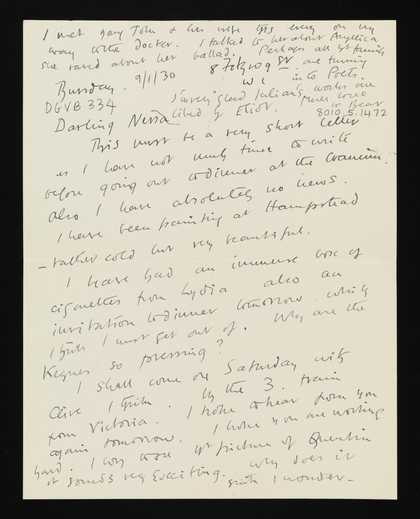 I met gary Tom & his wife this evening on my
way to the Doctor. I talked to her about Angelica
She raved about her ballad. Perhaps all yr family
8 Fitzroy St. are turning
Bursday. 9/1/30 W1 into Poets.
DGVB 334 I am very glad Julian's works are
liked by Eliot. Much love
Darling Nessa yr Bear
8010.5.1472
This must be a very short letter
as I have not much time to write
before going out to dinner at the
Also I have absolutely no news.
I have been painting at Hampstead
– rather cold but very beautiful.
I have had an immense box of
cigarettes from Lydia also an
invitation to dinner tomorrow which
I think I must get out of. Why are the
Keynes so pressing?
I shall come on Saturday with
Clive I think. By the 3. train
from Victoria. I hope to hear from you
again tomorrow. I hope you are working
hard. I long to see yr picture of Quentin
it sounds very exciting. Why does it
I wonder –